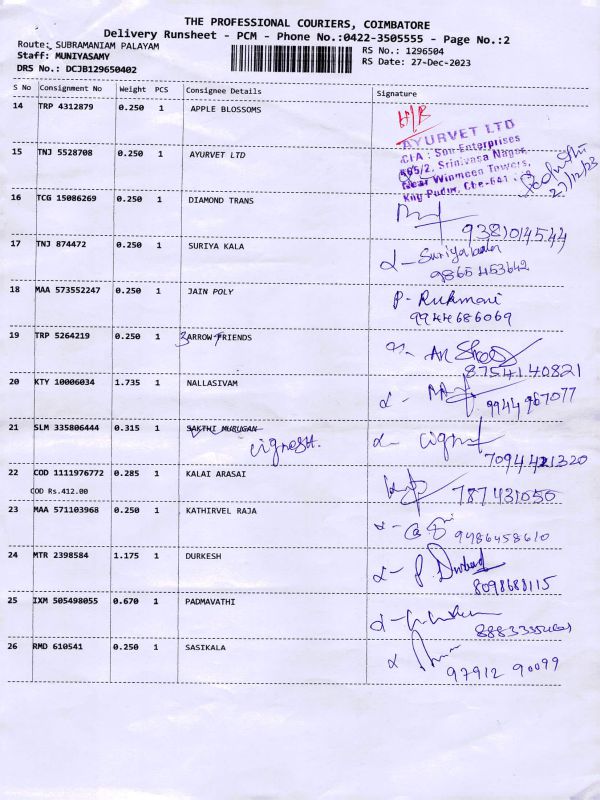 THE PROFESSIONAL COURIERS, COIMBATORE
Delivery Runsheet - PCM - Phone No.:0422-3505555 - Page No.:2
Route: SUBRAMANIAM PALAYAM
RS No.: 1296504
Staff: MUNIYASAMY
RS Date: 27-Dec-2023
DRS No.: DCJB129650402
S No Consignment No Weight PCS Consignee Details Signature
14 TRP 4312879 0.250 1 APPLE BLOSSOMS
AYURVET LTD
C/A : Sun Enterprises
15 TNJ 5528708 0.250 1 AYURVET LTD
565/2, Srinivasa Nagar,
Near Winmeen Towers,
27/12/23
16 TCG 15086269 0.250 1 DIAMOND TRANS
9381014544
17 TNJ 874472 0.250 1 SURIYA KALA
Suriyakala
9865453642
18 MAA 573552247 0.250 1 JAIN POLY
P. Rukmani
9944686069
19 TRP 5264219 0.250 1 ARROW FRIENDS
8754140821
20 KTY 10006034 1.735 1 NALLASIVAM
9944967077
21 SLM 335806444 0.315 1 SAKTHI MURUGAN
7094421320
22 COD 1111976772 0.285 1 KALAI ARASAI
COD Rs.412.00
787431050
23 MAA 571103968 0.250 1 KATHIRVEL RAJA
9486458610
24 MTR 2398584 1.175 1 DURKESH
8098688115
25 IXM 505498055 0.670 1 PADMAVATHI
26 RMD 610541 0.250 1 SASIKALA
97912 90099